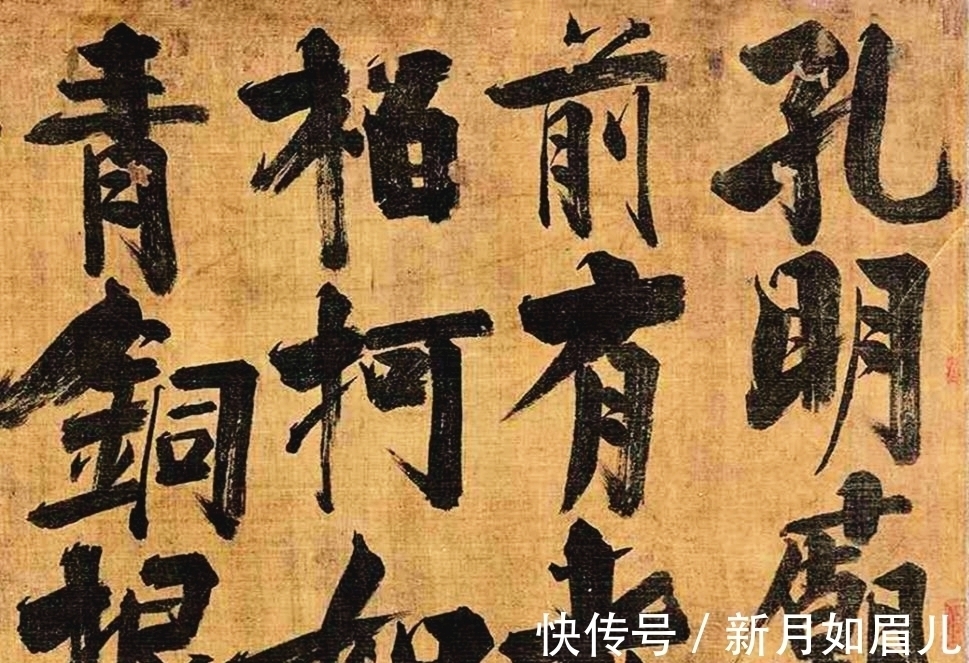 孔明廟
前有老
栢柯如
青銅根
快传号 / 新月如眉儿